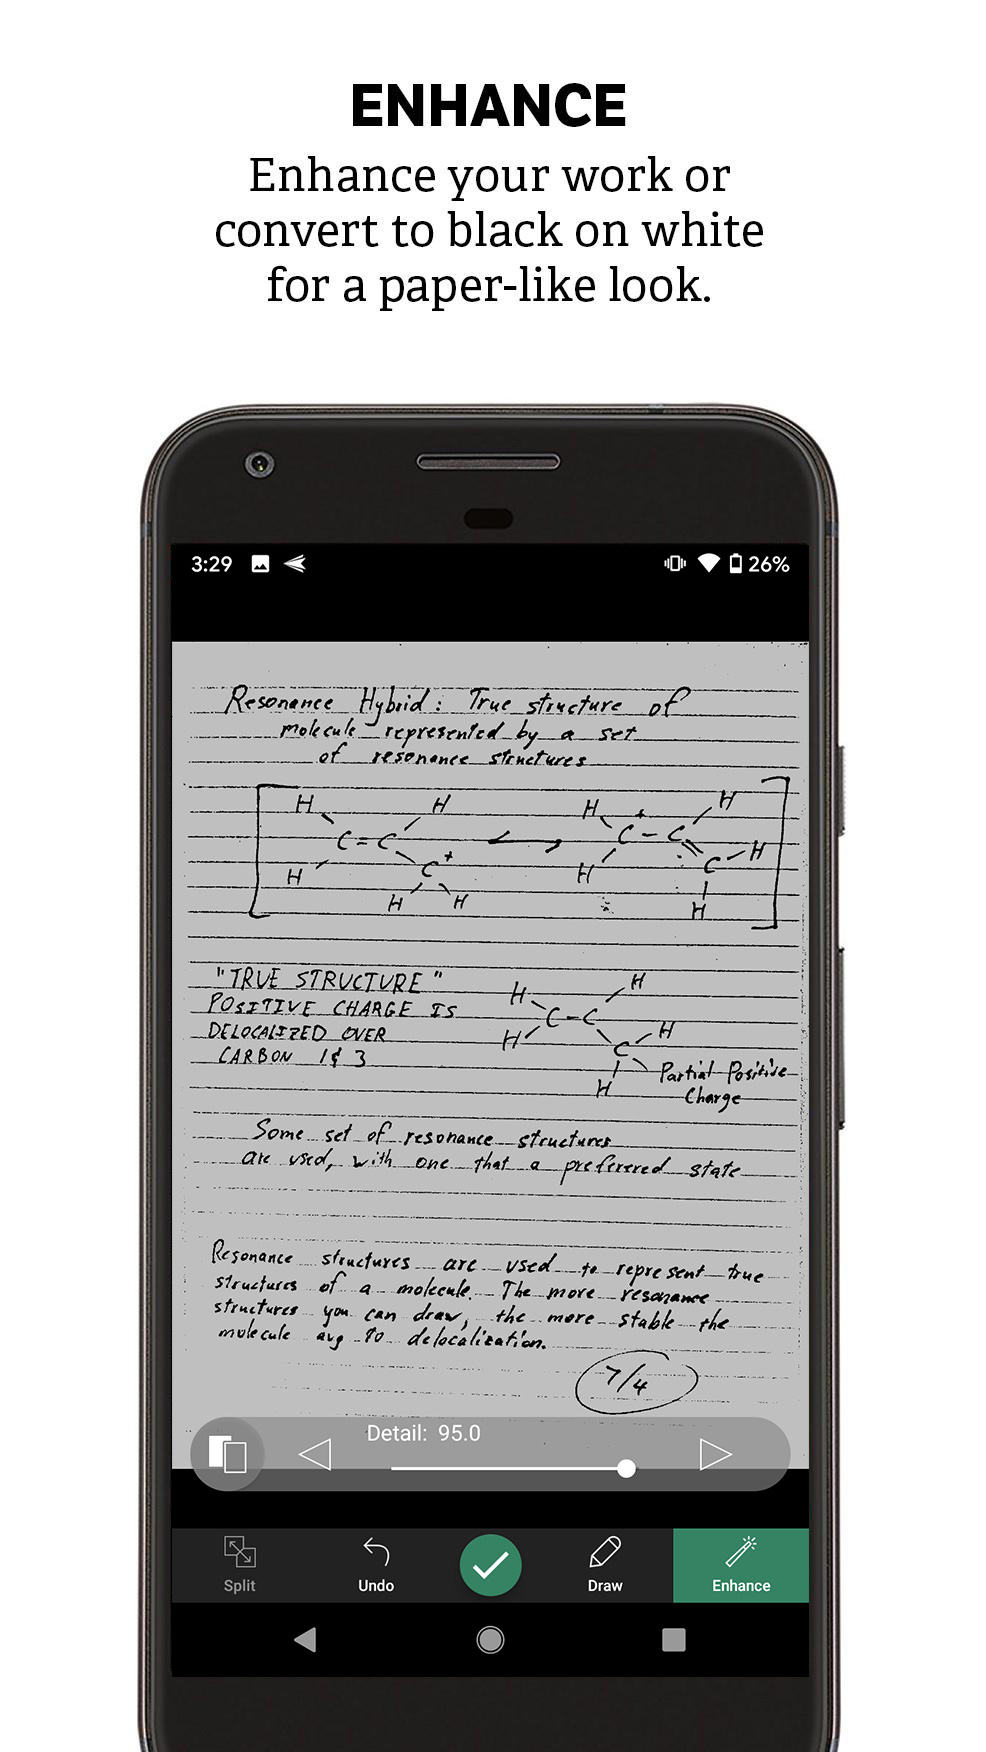 ENHANCE
Enhance your work or
convert to black on white
for a paper-like look.
3:29 26%
Resonance Hybrid: True structure of
molecule represented by a set
of resonance structures
H H H + H
C=C C-C H
H C+ H C
H H H
"TRUE STRUCTURE"
POSITIVE CHARGE IS
DELOCALIZED OVER
CARBON 1 & 3
H H
C-C
H H
C
H
Partial Positive
Charge
Some set of resonance structures
are used, with one that a preferered state
Resonance structures are used to represent true
structures of a molecule. The more resonance
structures you can draw, the more stable the
molecule avg to delocalization.
7/4
Detail: 95.0
Split Undo Draw Enhance